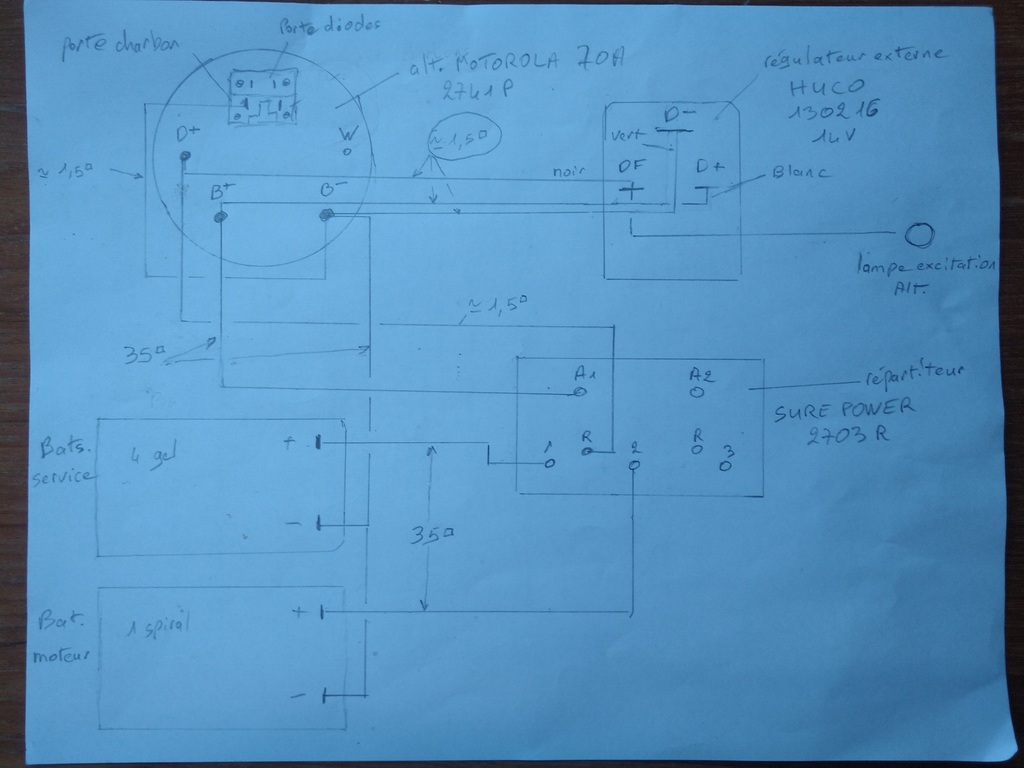 porte charbon
Porte diodes
alt. MOTOROLA 70A
2741P
régulateur externe
HUCO
130216
14V
D+
W
≃ 1,5▫
≃ 1,5▫
D-
vert
noir
DF
D+
Blanc
B+
B-
lampe excitation
Alt.
≃ 1,5▫
35▫
A1
A2
répartiteur
SURE POWER
2703R
Bats.
service
4 gel
+
-
1
R
2
R
3
35▫
Bat.
moteur
1 spiral
+
-